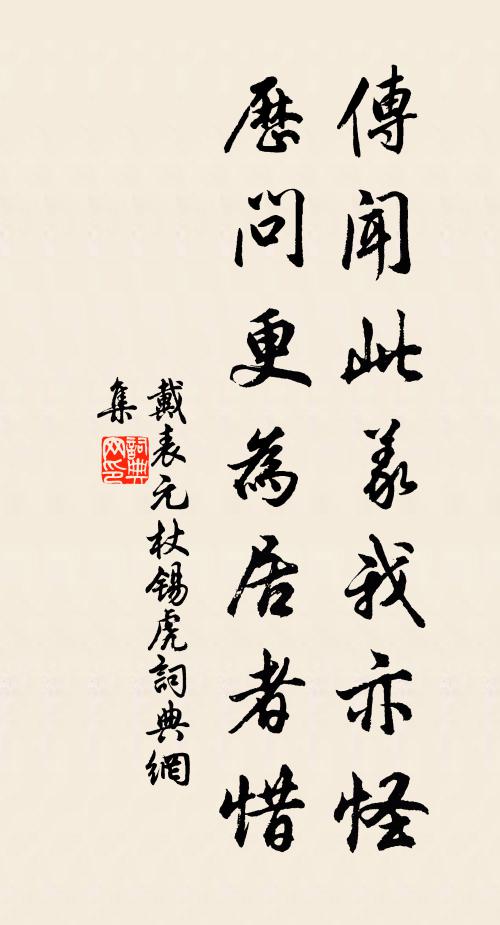 傳聞此義我亦怪
歷問更為居者惜
戴表元杖錫虎詞典網
集
詞典網印